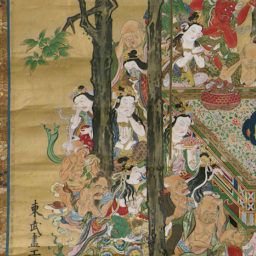 東武畫工